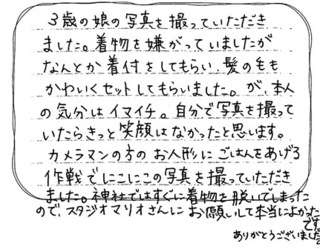 3歳の娘の写真を撮っていただき
ました。着物を嫌がっていましたが
なんとか着付をしてもらい、髪の毛も
かわいくセットしてもらいました。が、本人
の気分はイマイチ。自分で写真を撮って
いたらきっと笑顔はなかったと思います。
カメラマンの方のお人形にごはんをあげる
作戦でにこにこの写真を撮っていただき
ました。神社ではすぐに着物を脱いでしまった
ので、スタジオマリオさんにお願いして本当によかった
です。
ありがとうございました